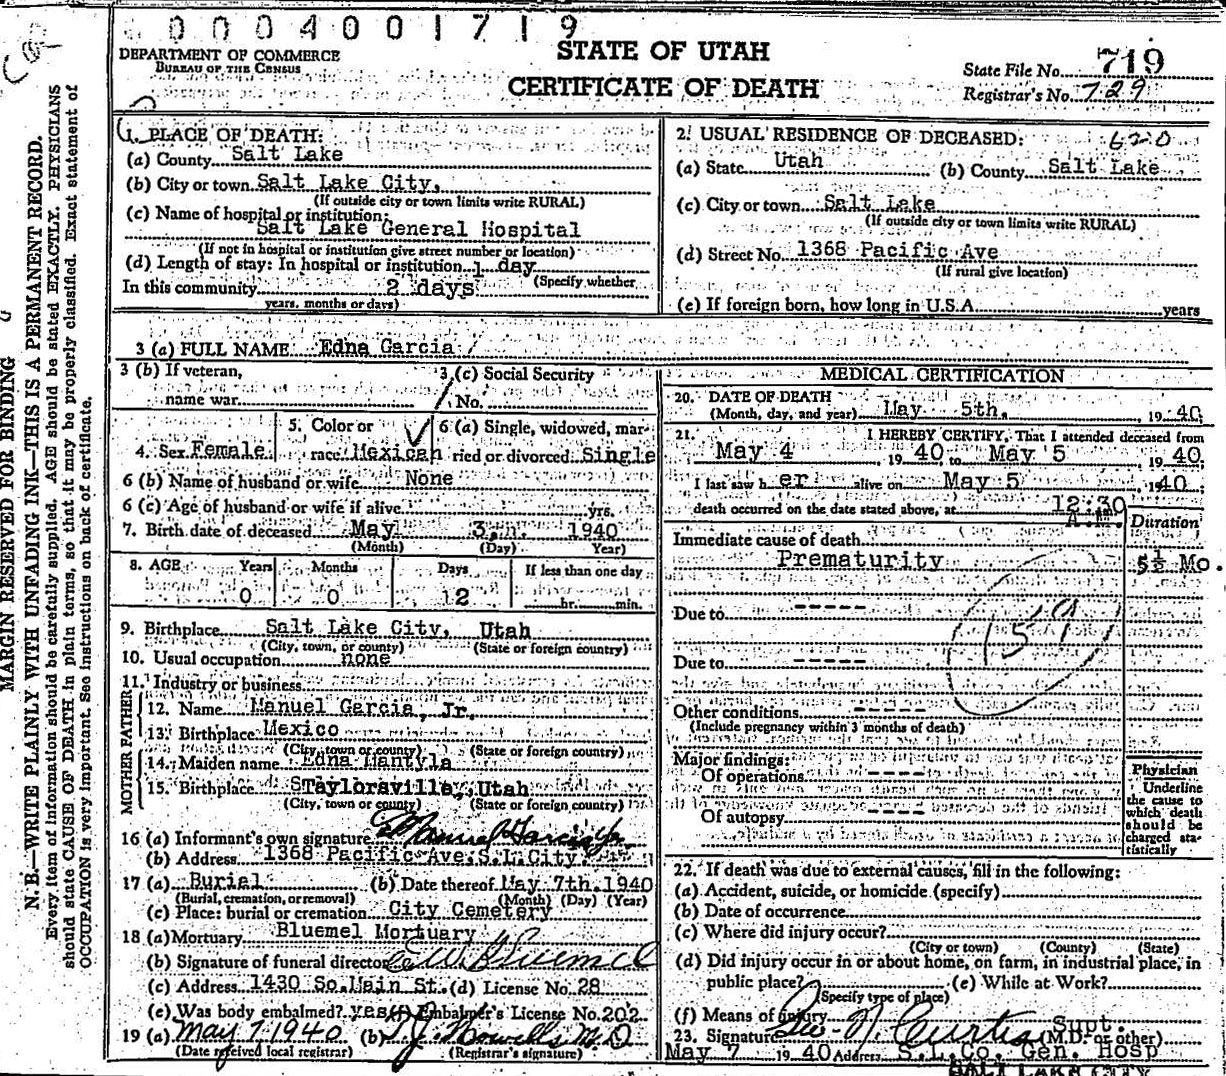 0004001719
DEPARTMENT OF COMMERCE
BUREAU OF THE CENSUS
STATE OF UTAH
CERTIFICATE OF DEATH
State File No. 719
Registrar's No. 729
MARGIN RESERVED FOR BINDING
N. B.—WRITE PLAINLY WITH UNFADING INK—THIS IS A PERMANENT RECORD.
Every item of information should be carefully supplied. AGE should be stated EXACTLY. PHYSICIANS
should state CAUSE OF DEATH in plain terms, so that it may be properly classified. Exact statement of
OCCUPATION is very important. See instructions on back of certificate.
1. PLACE OF DEATH:
(a) County Salt Lake
(b) City or town Salt Lake City,
(If outside city or town limits write RURAL)
(c) Name of hospital or institution:
Salt Lake General Hospital
(If not in hospital or institution give street number or location)
(d) Length of stay: In hospital or institution 1 day
(Specify whether
In this community 2 days
years, months or days)
2. USUAL RESIDENCE OF DECEASED: 620
(a) State Utah (b) County Salt Lake
(c) City or town Salt Lake
(If outside city or town limits write RURAL)
(d) Street No. 1368 Pacific Ave
(If rural give location)
(e) If foreign born, how long in U.S.A. years
3 (a) FULL NAME Edna Garcia
3 (b) If veteran,
name war
3 (c) Social Security
No.
4. Sex Female
5. Color or
race Mexican
6 (a) Single, widowed, mar-
ried or divorced Single
6 (b) Name of husband or wife None
6 (c) Age of husband or wife if alive yrs.
7. Birth date of deceased May 3 1940
(Month) (Day) Year)
8. AGE Years Months Days If less than one day
0 0 2 hr. min.
9. Birthplace Salt Lake City, Utah
(City, town, or county) (State or foreign country)
10. Usual occupation none
11. Industry or business
FATHER
12. Name Manuel Garcia, Jr.
13. Birthplace Mexico
(City, town or county) (State or foreign country)
MOTHER
14. Maiden name Edna Mantyla
15. Birthplace Taylorsville, Utah
(City, town or county) (State or foreign country)
16 (a) Informant's own signature Manuel Garcia Jr.
(b) Address 1368 Pacific Ave. S.L.City.
17 (a) Burial (b) Date thereof May 7th. 1940
(Burial, cremation, or removal) (Month) (Day) (Year)
(c) Place: burial or cremation City Cemetery
18 (a) Mortuary Bluemel Mortuary
(b) Signature of funeral director
(c) Address 1430 So.Main St. (d) License No. 28
(e) Was body embalmed? yes (f) Embalmer's License No. 202
19 (a) May 7, 1940 (b) J. Howells M.D
(Date received local registrar) (Registrar's signature)
MEDICAL CERTIFICATION
20. DATE OF DEATH
(Month, day, and year) May 5th. 1940
21. I HEREBY CERTIFY, That I attended deceased from
May 4 1940 to May 5 1940
I last saw her alive on May 5 1940
death occurred on the date stated above, at 12:30
A.M.
Duration
Immediate cause of death
Prematurity 5½ Mo.
Due to -----
159
Due to -----
Other conditions -----
(Include pregnancy within 3 months of death)
Major findings:
Of operations ----
Of autopsy ----
Physician
Underline
the cause to
which death
should be
charged sta-
tistically
22. If death was due to external causes, fill in the following:
(a) Accident, suicide, or homicide (specify)
(b) Date of occurrence
(c) Where did injury occur?
(City or town) (County) (State)
(d) Did injury occur in or about home, on farm, in industrial place, in
public place? (e) While at Work?
(Specify type of place)
(f) Means of injury
23. Signature Geo. N. Curtis Supt.
(M.D. or other)
May 7 1940 Address S.L.Co. Gen. Hosp
SALT LAKE CITY